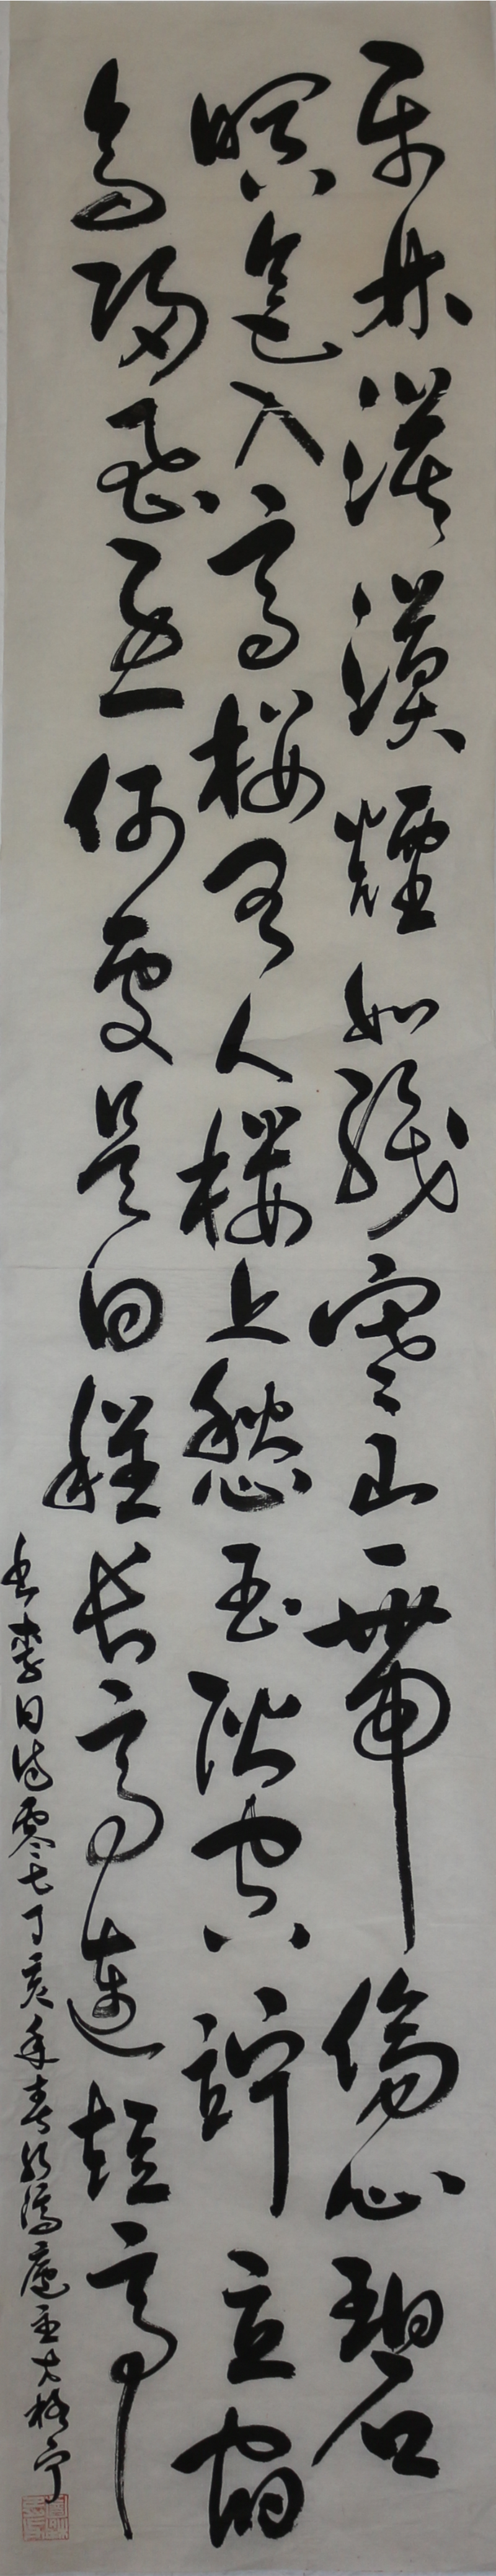 平林漠漠煙如織寒山一帶傷心碧
暝色入高樓有人樓上愁玉階空竚立宿
鳥歸飛急何處是回程長亭連短亭
書李白詩零七丁亥年春